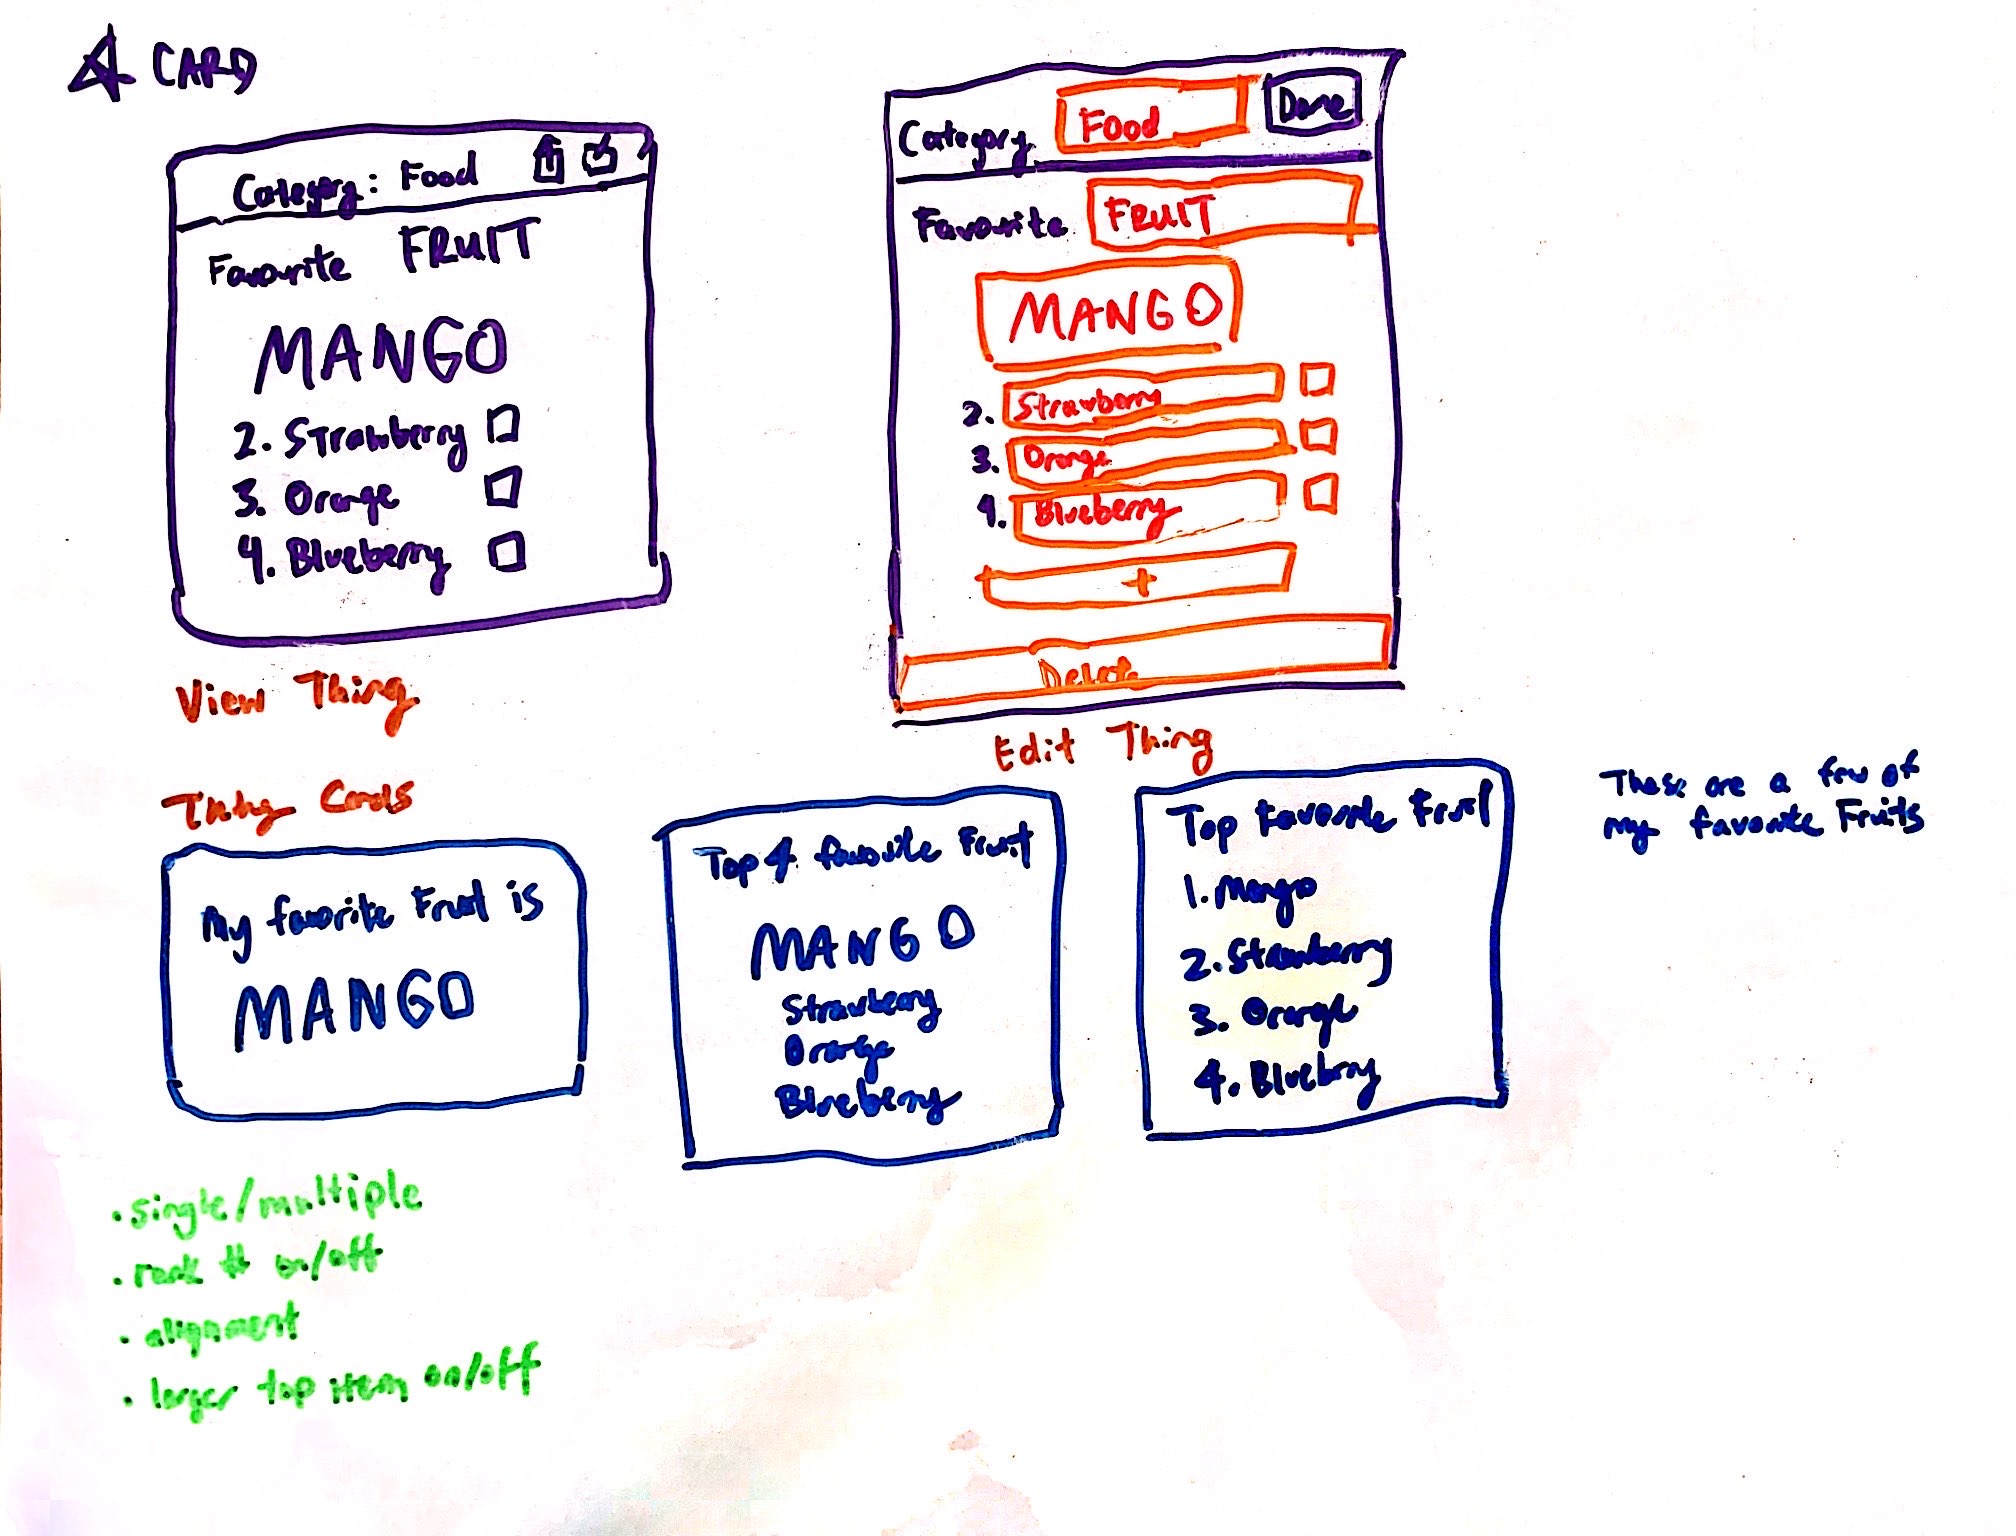 CARD
Category: Food
Favourite FRUIT
MANGO
2. Strawberry
3. Orange
4. Blueberry
View Thing
Category Food Done
Favorite FRUIT
MANGO
2. Strawberry
3. Orange
4. Blueberry
+
Delete
Edit Thing
Thing Cards
My favorite Fruit is
MANGO
Top 4 favorite Fruit
MANGO
Strawberry
Orange
Blueberry
Top Favorite Fruit
1. Mango
2. Strawberry
3. Orange
4. Blueberry
These are a few of
my favorite Fruits
• single/multiple
• rank # on/off
• alignment
• larger top item on/off